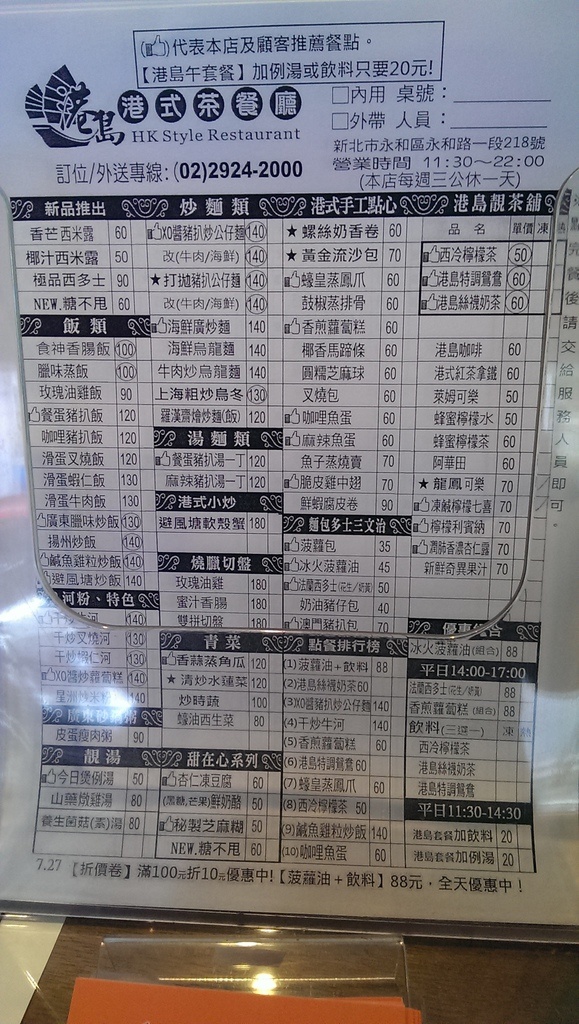 (👍)代表本店及顧客推薦餐點。
【港島午套餐】加例湯或飲料只要20元!
港島 港式茶餐廳
HK Style Restaurant
□內用 桌號：
□外帶 人員：
新北市永和區永和路一段218號
訂位/外送專線：(02)2924-2000
營業時間 11:30～22:00
(本店每週三公休一天)
新品推出
香芒西米露 60
椰汁西米露 50
極品西多士 90
NEW.糖不甩 60
飯類
食神香腸飯 100
臘味蒸飯 100
玫瑰油雞飯 90
餐蛋豬扒飯 120
咖哩豬扒飯 120
滑蛋叉燒飯 120
滑蛋蝦仁飯 130
滑蛋牛肉飯 130
廣東臘味炒飯 130
揚州炒飯 130
鹹魚雞粒炒飯 140
避風塘炒飯 140
河粉、特色
干炒牛河 140
干炒叉燒河 130
干炒蝦仁河 130
XO醬炒蘿蔔糕 140
星洲炒米粉 140
皮蛋瘦肉粥 90
靚湯
今日煲例湯 50
山藥燉雞湯 80
養生菌菇(素)湯 80
炒麵類
XO醬豬扒炒公仔麵 140
改(牛肉/海鮮) 140
★打拋豬扒公仔麵 140
改(牛肉/海鮮) 140
海鮮廣炒麵 140
海鮮烏龍麵 140
牛肉炒烏龍麵 140
上海粗炒烏冬 130
羅漢齋燴炒麵(飯) 120
湯麵類
餐蛋豬扒湯一丁 120
麻辣豬扒湯一丁 120
港式小炒
避風塘軟殼蟹 180
燒臘切盤
玫瑰油雞 180
蜜汁香腸 180
雙拼切盤 180
青菜
香蒜蒸角瓜 120
★清炒水蓮菜 120
炒時蔬 100
蠔油西生菜 80
甜在心系列
杏仁凍豆腐 60
(黑糖,芒果)鮮奶酪 50
秘製芝麻糊 50
NEW.糖不甩 60
港式手工點心
★螺絲奶香卷 60
★黃金流沙包 70
蠔皇蒸鳳爪 60
鼓椒蒸排骨 60
香煎蘿蔔糕 60
椰香馬蹄條 60
圓糯芝麻球 60
叉燒包 60
咖哩魚蛋 60
麻辣魚蛋 60
魚子蒸燒賣 70
脆皮雞中翅 70
鮮蝦腐皮卷 90
麵包多士三文治
菠蘿包 35
冰火菠蘿油 45
法蘭西多士(花生/奶黃) 50
奶油豬仔包 40
澳門豬扒包
點餐排行榜
(1)菠蘿油+飲料 88
(2)港島絲襪奶茶 60
(3)XO醬豬扒炒公仔麵 140
(4)干炒牛河 140
(5)香煎蘿蔔糕 60
(6)港島特調鴛鴦 60
(7)蠔皇蒸鳳爪 60
(8)西冷檸檬茶 50
(9)鹹魚雞粒炒飯 140
(10)咖哩魚蛋 60
港島靚茶舖
品名 單價 凍
西冷檸檬茶 50
港島特調鴛鴦 60
港島絲襪奶茶 60
港島咖啡 60
港式紅茶拿鐵 60
萊姆可樂 50
蜂蜜檸檬水 50
蜂蜜檸檬茶 60
阿華田 60
★龍鳳可樂 70
凍鹹檸檬七喜 70
檸檬利賓納 70
潤肺香濃杏仁露 70
新鮮奇異果汁 70
優惠組合
冰火菠蘿油(組合) 88
平日14:00-17:00
法蘭西多士(花生/奶黃) 88
香煎蘿蔔糕(組合) 88
飲料(三選一) 凍 熱
西冷檸檬茶
港島絲襪奶茶
港島特調鴛鴦
平日11:30-14:30
港島套餐加飲料 20
港島套餐加例湯 20
後請交給服務人員即可。
7.27【折價卷】滿100元折10元優惠中!【菠蘿油+飲料】88元，全天優惠中！